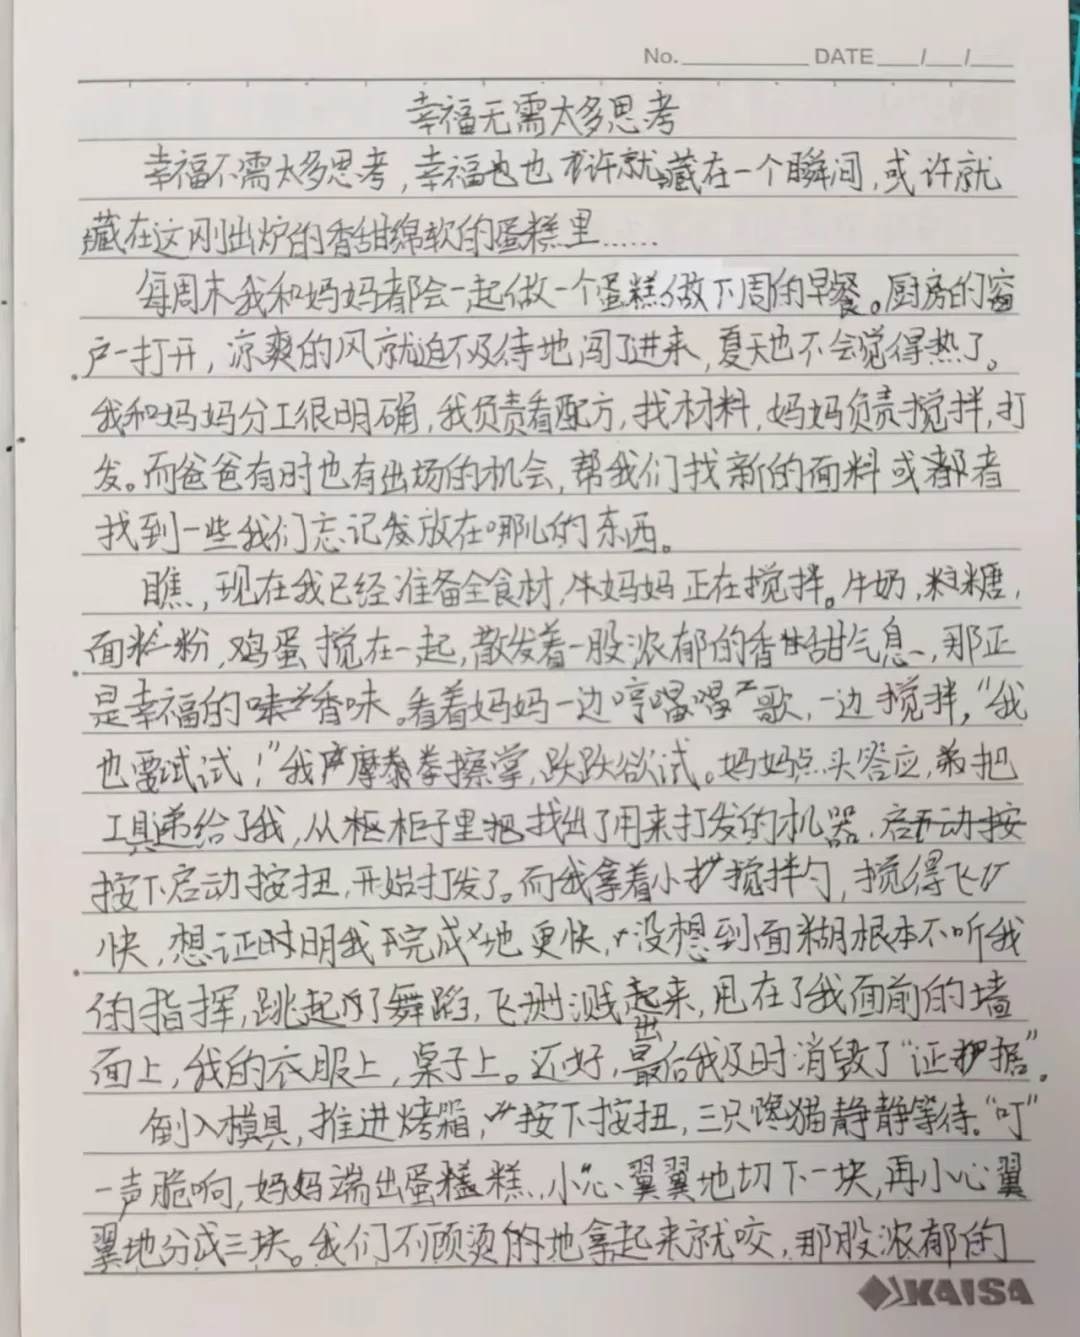 No. DATE / /
幸福无需太多思考
幸福不需太多思考,幸福也也许就藏在一个瞬间,或许就
藏在这刚出炉的香甜绵软的蛋糕里……
每周末我和妈妈都会一起做一个蛋糕做下周的早餐。厨房的窗
户一打开,凉爽的风就迫不及待地闯了进来,夏天也不会觉得热了。
我和妈妈分工很明确,我负责看配方,找材料,妈妈负责搅拌,打
发。而爸爸有时也有出场的机会,帮我们找新的面料或都者
找到一些我们忘记放在哪儿的东西。
瞧,现在我已经准备全食材,妈妈正在搅拌。牛奶,糖,
面粉,鸡蛋搅在一起,散发着一股浓郁的香甜气息,那正
是幸福的香味。看着妈妈一边哼唱歌,一边搅拌,“我
也要试试!”我摩拳擦掌,跃跃欲试。妈妈点头答应,把
工具递给了我,从柜子里找出了用来打发的机器,启动按
按下启动按扭,开始打发了。而我拿着小搅拌勺,搅得飞
快,想证明我完成地更快,没想到面糊根本不听我
的指挥,跳起了舞蹈,飞溅起来,甩在了我面前的墙
出
面上,我的衣服上,桌子上。还好,最后我及时消毁了“证据”。
倒入模具,推进烤箱,按下按扭,三只馋猫静静等待。“叮”
一声脆响,妈妈端出蛋糕,小心翼翼地切下一块,再小心翼
翼地分成三块。我们不顾烫的地拿起来就咬,那股浓郁的
KAISA